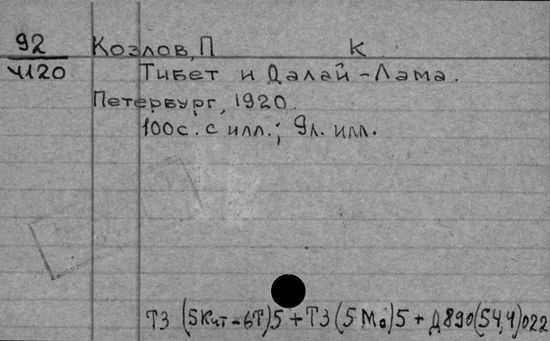 92 Козлов, П К
Ч120 Тибет и Далай-Лама.
Петербург, 1920.
100с. с илл.; 9л. илл.
Т3 (5Кит-6Т)5 + Т3 (5Мо)5 + Д890(54,4)022